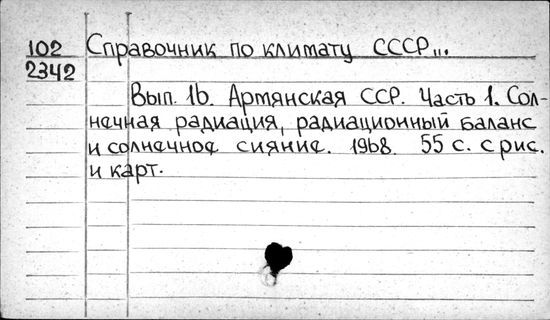 102 Справочник по климату СССР...
2342
Вып. 16. Армянская ССР. Часть 1. Сол-
нечная радиация, радиационный баланс
и солнечное сияние. 1968. 55 с. с рис.
и карт.